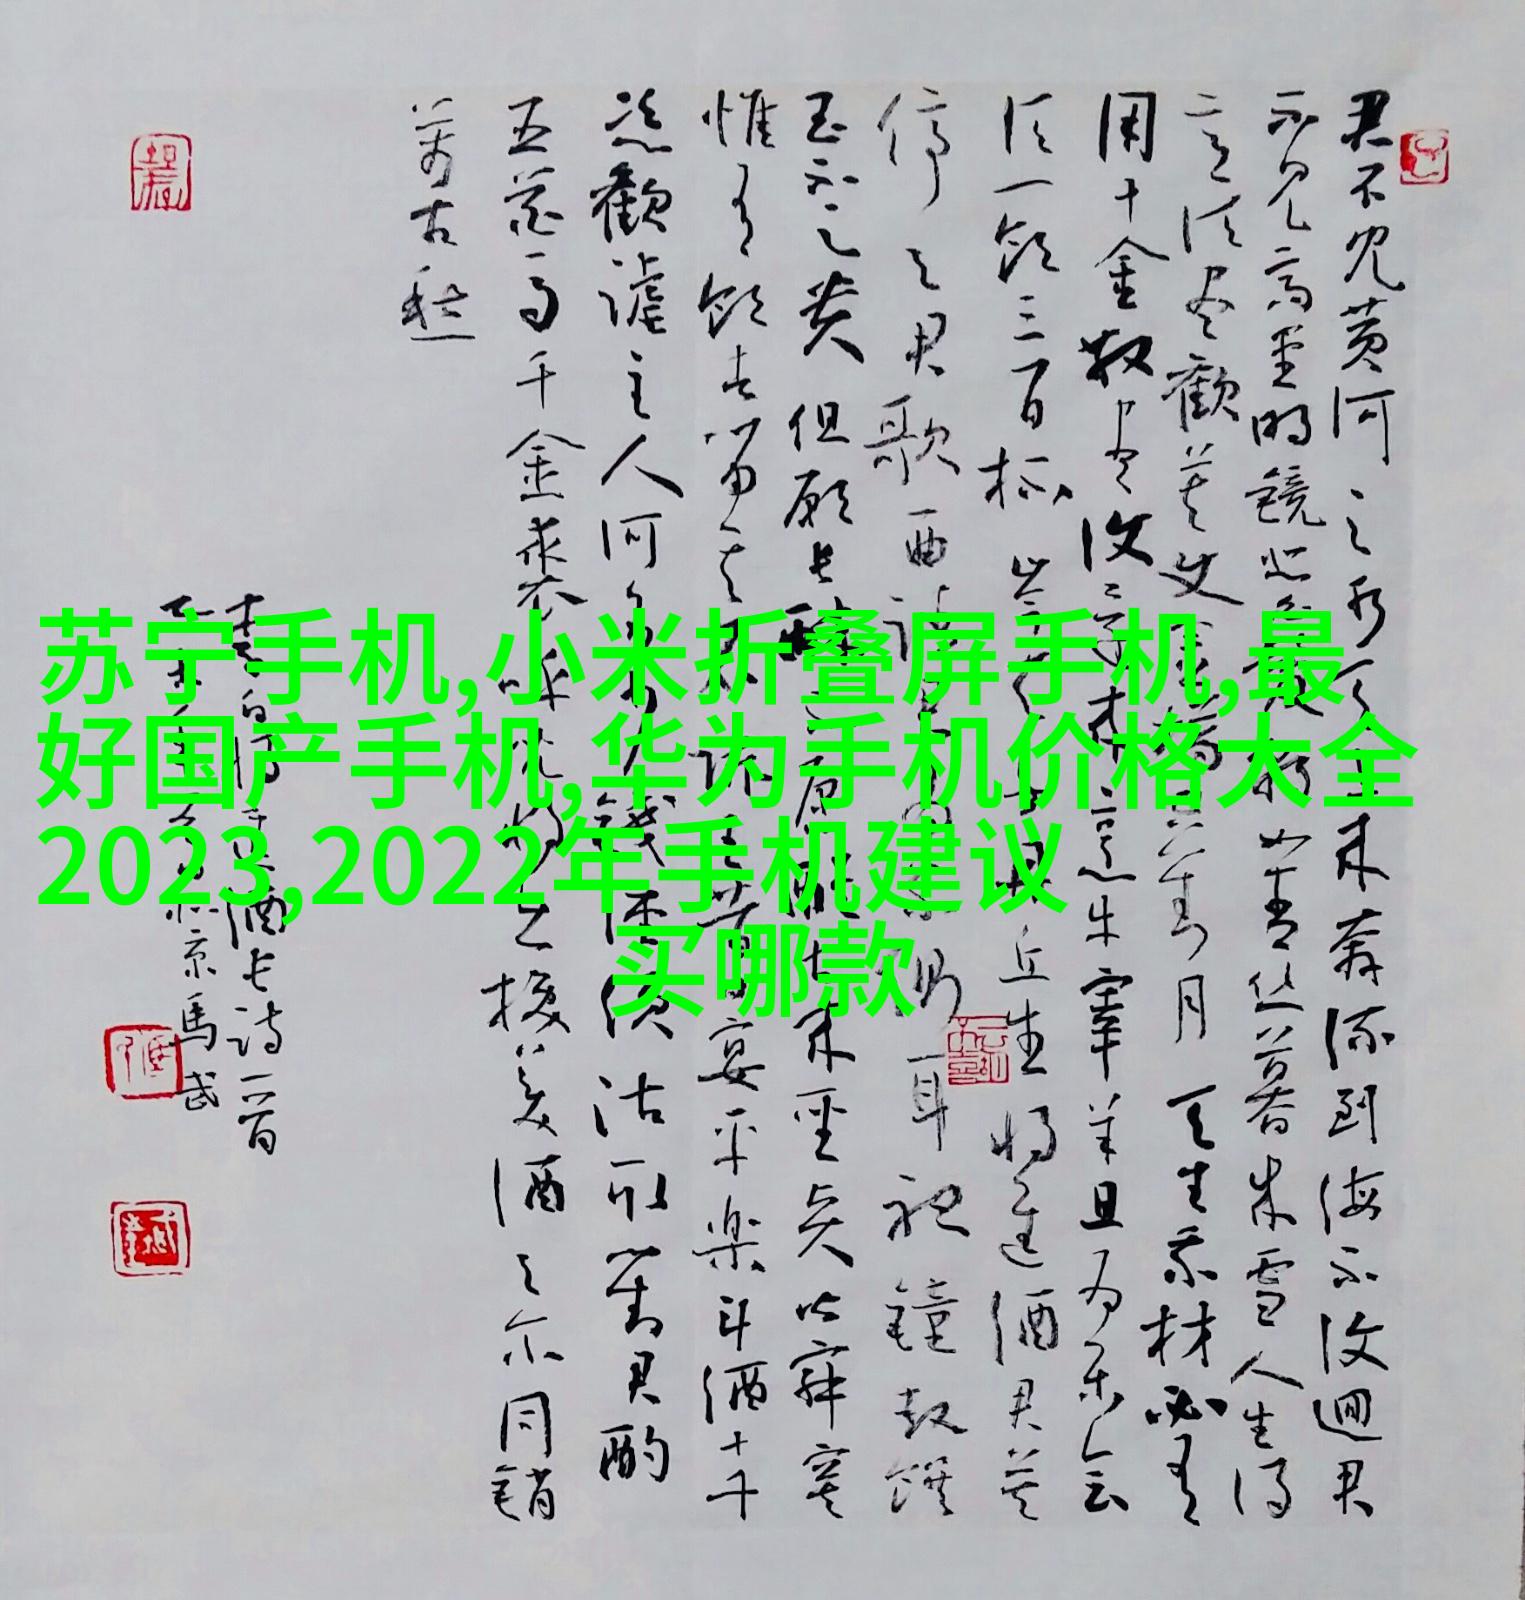 君不见黄河之水天上来奔流到海不復迴君
不见高堂明镜悲白发朝如青丝暮成雪人生得
意须尽歡莫使金樽空对月天生我材必有
用千金散尽復还来烹牛宰羊且为乐会
须一饮三百杯岑夫子丹丘生将进酒君莫
停与君歌一曲请君为我倾耳听鐘鼓馔
玉不足贵但愿长醉不愿醒古来圣贤皆寂寞
惟有饮者留其名陈王昔时宴平楽斗酒十千
恣歡谑主人何为言少钱径须沽取对君酌
五花马千金裘呼儿将出换美酒与尔同销
萬古愁
李白将进酒古诗一首
京馬武
苏宁手机,小米折叠屏手机,最
好国产手机,华为手机价格大全
2023,2022年手机建议
买哪款